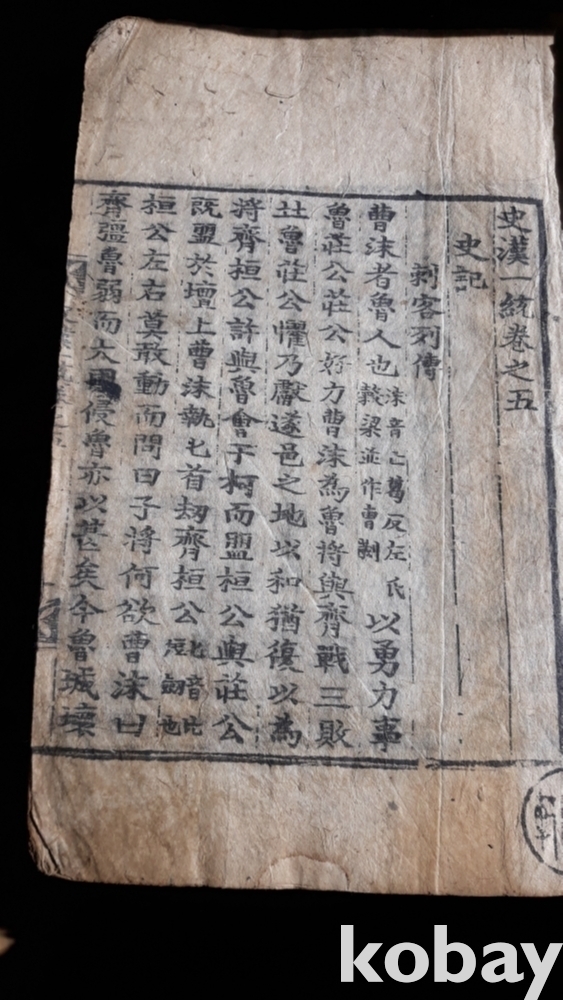 史漢一統卷之五
史記
刺客列傳
曹沫者魯人也沫音亡葛反左氏穀梁並作曹劌以勇力事
魯莊公莊公好力曹沫為魯將與齊戰三敗
北魯莊公懼乃獻遂邑之地以和猶復以為
將齊桓公許與魯會于柯而盟桓公與莊公
既盟於壇上曹沫執匕首劫齊桓公匕音比短劒也
桓公左右莫敢動而問曰子將何欲曹沫曰
齊强魯弱而大國侵魯亦以甚矣今魯城壞
kobay